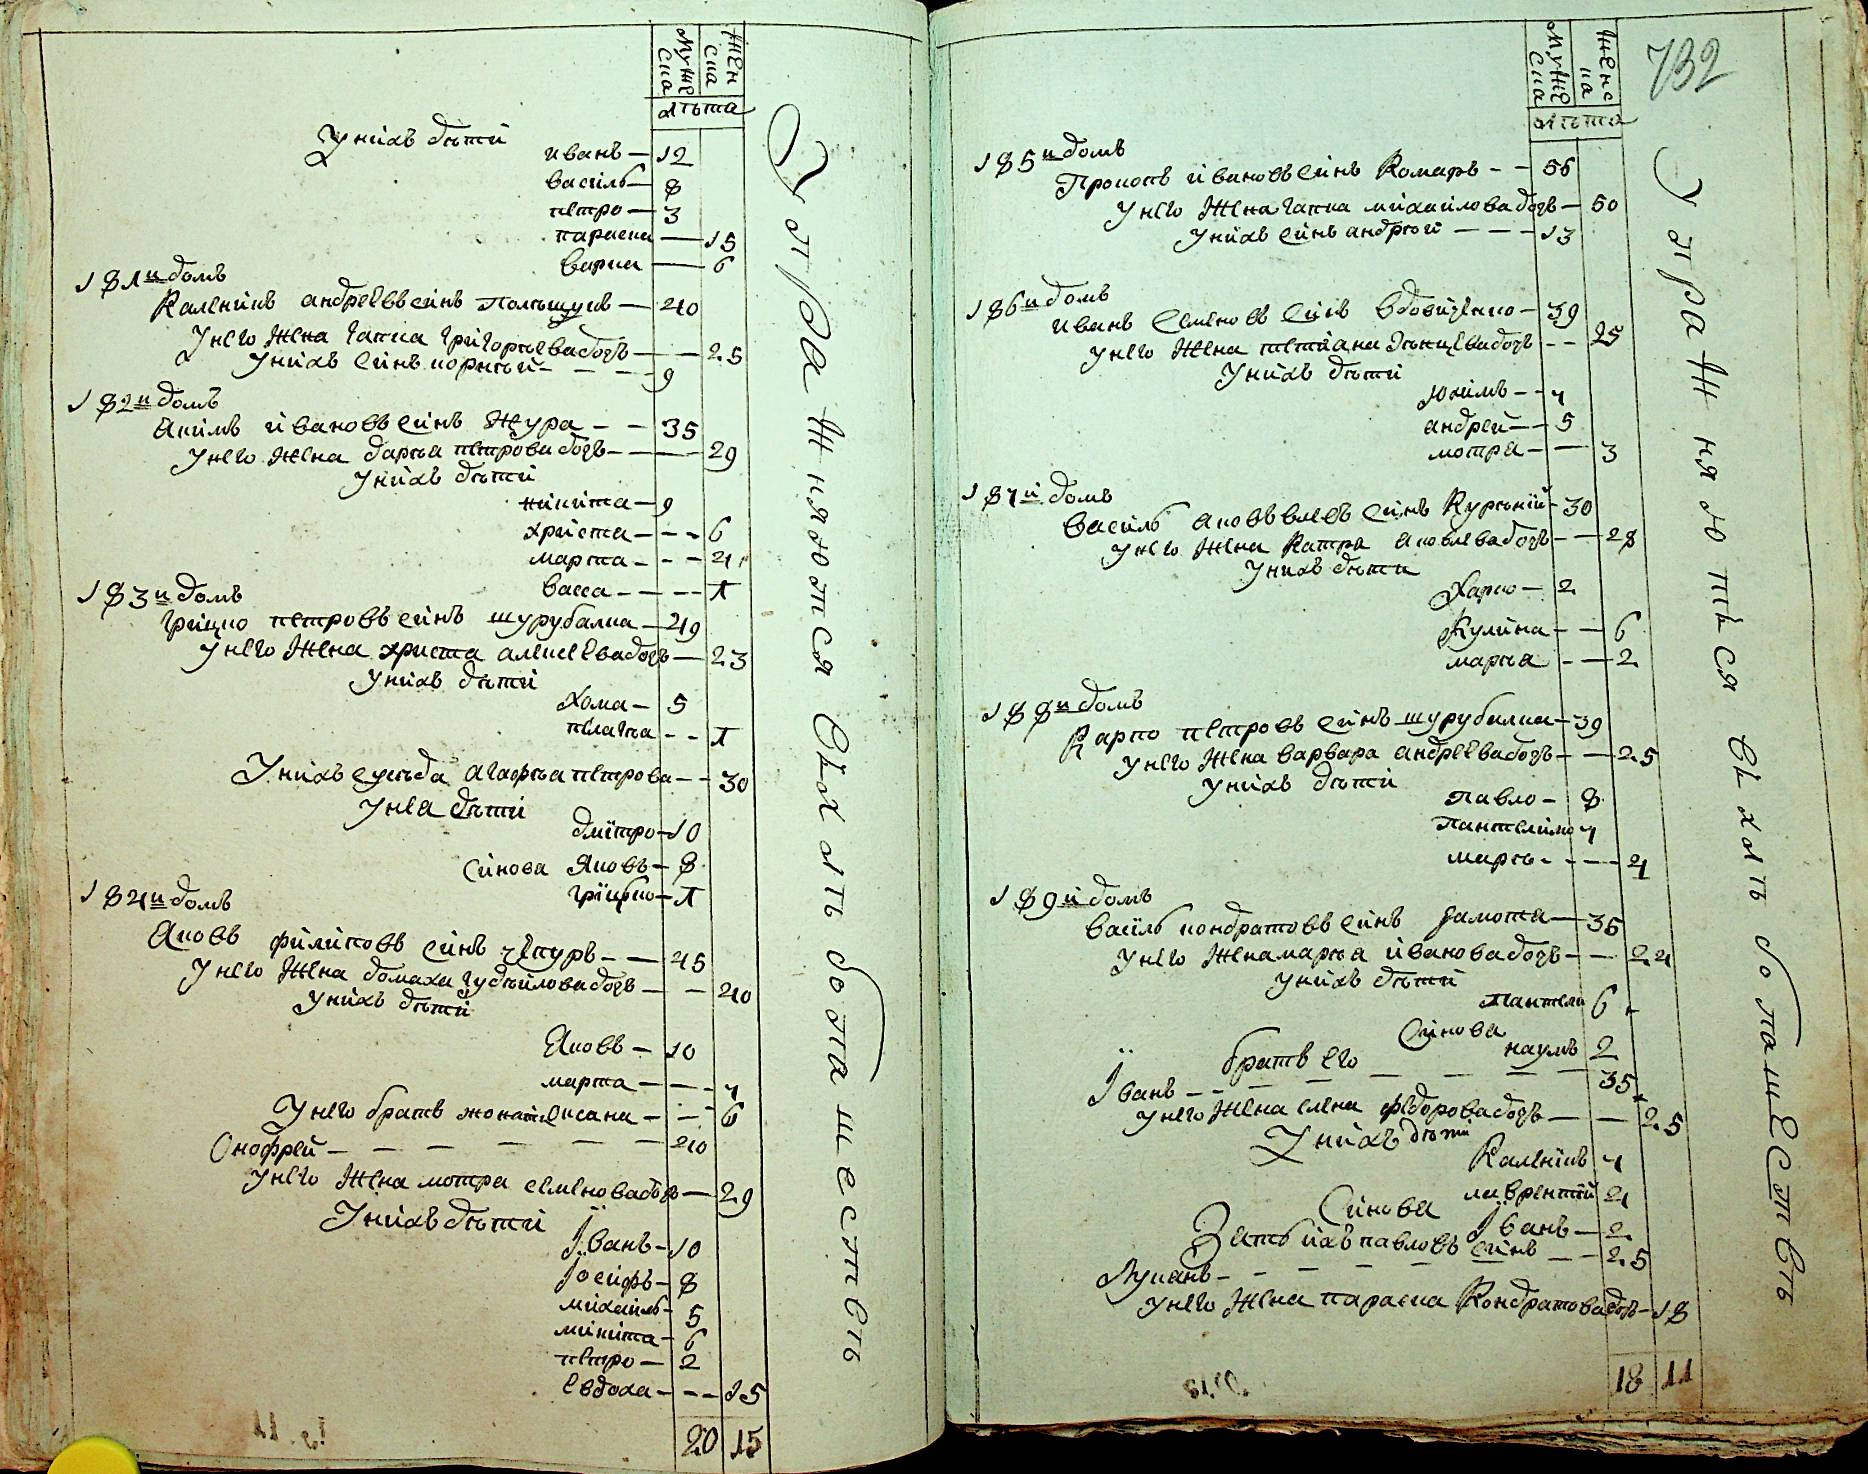 Муже
ска
Жен
ска
лѣта
У нихъ дѣти
иванъ — 12
василь — 8
петро — 3
параска — 15
варка — 6
181 й домъ
Каленикъ андреевъ синъ — 40
У него жена гапка григорьева дочъ — 25
У нихъ синъ корнѣй — 9
182 й домъ
Акимъ ивановъ синъ Жура — 35
У него жена дарья петрова дочъ — 29
У нихъ дѣти
никита — 9
христа — 6
марта — 4
васса — 1
183 й домъ
Грицко петровъ синъ шурубалка — 49
У него жена христа алексеева дочъ — 23
У нихъ дѣти
Хома — 5
пелагѣа — 1
У нихъ сусѣда агафѣа петрова — 30
У неа дѣти
дмитро — 10
Синова Яковъ — 8
грицко — 1
184 й домъ
Яковъ филиповъ синъ чепуръ — 45
У него жена домаха дочъ — 40
У нихъ дѣти
Яковъ — 10
марта — 7
У него братъ — 6
Онофрей — 40
У него жена мотра семенова дочъ — 29
У нихъ дѣти
Іванъ — 10
Іосифъ — 8
михаилъ — 5
микита — 6
петро — 2
евдоха — 15
20 15
У отражняются
въ хатѣ бѣ па шествѣ
732
Муже
ска
Женс
ка
лѣта
185 й домъ
Прокопъ ивановъ синъ Комаръ — 55
У него жена гапка михайлова дочъ — 50
У нихъ синъ андрѣй — 13
186 й домъ
иванъ семеновъ синъ вдовиченко — 39
У него жена тетиана дочъ — 25
У нихъ дѣти
Юхимъ — 7
андрей — 5
мотра — 3
187 й домъ
Василь яковлевъ синъ Курький — 30
У него жена Катра яковлева дочъ — 28
У нихъ дѣти
Харко — 2
Кулина — 6
марѣа — 2
188 й домъ
Карпо петровъ синъ шурубалка — 39
У него жена варвара андреева дочъ — 25
У нихъ дѣти
Павло — 8
Пантелимо 7
марѣа — 4
189 й домъ
Василь кондратовъ синъ — 35
У него жена марѣа иванова дочъ — 24
У нихъ дѣти
Пантели 6
Синова
наумъ 2
братъ его
Іванъ — 35
У него жена елена федорова дочъ — 25
У нихъ дѣти
Каленикъ 7
лаврентий 4
Синова Іванъ — 2
Зять ихъ павловъ синъ — 25
Лукянъ
У него жена параска Кондратова дочъ — 18
18 11